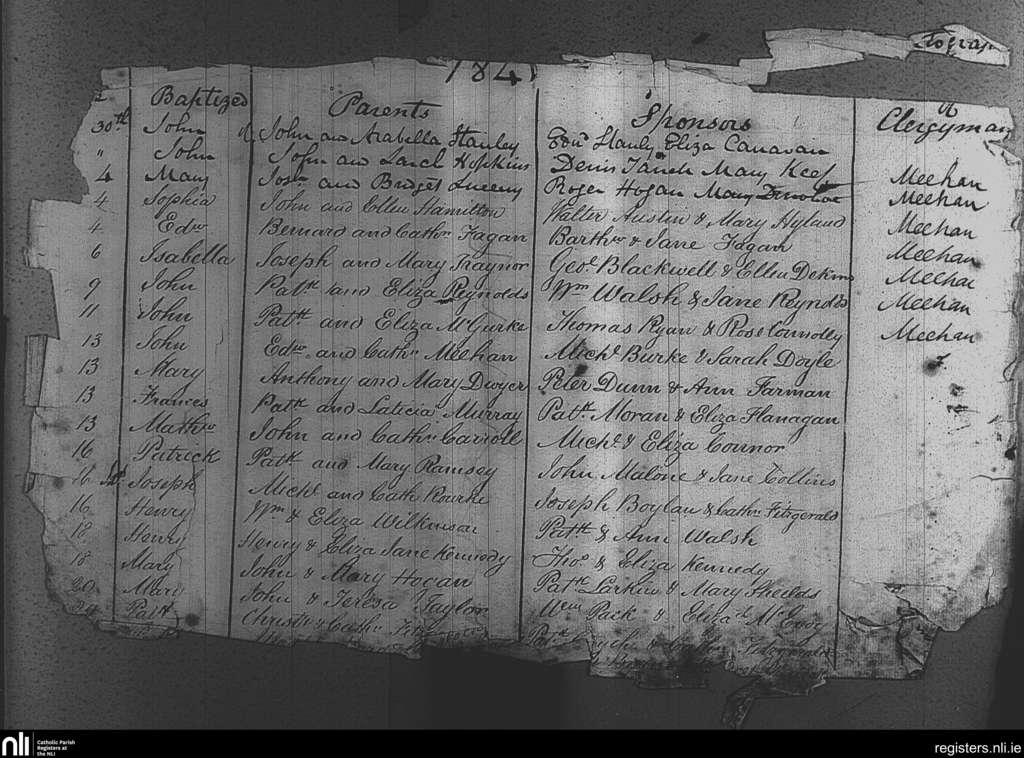 184
Baptized Parents Sponsors Clergyman
30th John of John an Arabella Stanley Edwd Stanly Eliza Canavan
" John John an Sarah Hopkins Denis Mary Keef
4 Mary Josh and Bridget Sweeny Roger Hogan Mary Meehan
4 Sophia John and Ellen Hamilton Walter Austin & Mary Hyland Meehan
4 Edwd Bernard and Cathn Fagan Barthw & Jane Fagan Meehan
6 Isabella Joseph and Mary Traynor Geo. Blackwell & Ellen Dekins Meehan
9 John Patk and Eliza Reynolds Wm Walsh & Jane Reynolds Meehan
11 John Patk and Eliza McGurke Thomas Ryan & Rose Connolly Meehan
13 John Edwd and Cathn Meehan Michl Burke & Sarah Doyle Meehan
13 Mary Anthony and Mary Dwyer Peter Dunn & Ann Farman
13 Frances Patk and Laticia Murray Patk Moran & Eliza Flanagan
13 Mathw John and Cathn Carroll Michl & Eliza Connor
16 Patrick Patk and Mary Ramsey John Malone & Jane Collins
16 Joseph Michl and Cath Rourke Joseph Boylan & Cathn Fitzgerald
16 Henry Wm & Eliza Wilkinson Patk & Ann Walsh
18 Henry Henry & Eliza Jane Kennedy Thos & Eliza Kennedy
18 Mary John & Mary Hogan Patk Larkin & Mary Shields
20 Mary John & Teresa Taylor Wm Pack & Elizath McEvoy
20 Patk Christr & Cathn
nli Catholic Parish Registers at the NLI
registers.nli.ie